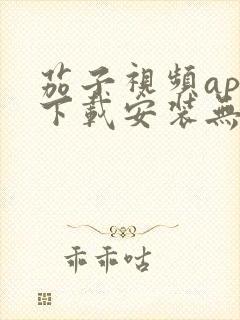 茄子視頻ap
下載安裝無
乖乖咕